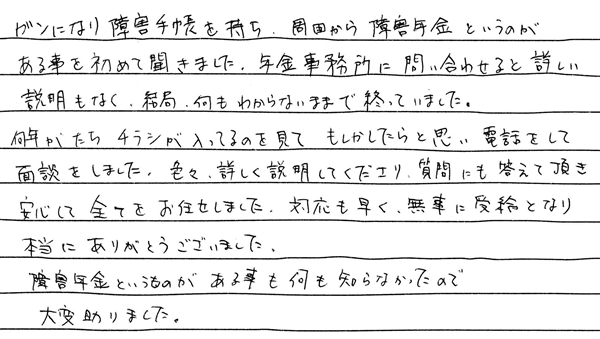 ガンになり障害手帳を持ち、周囲から障害年金というのが
ある事を初めて聞きました。年金事務所に問い合わせると詳しい
説明もなく、結局、何もわからないままで終っていました。
何年かたちチラシが入ってるのを見てもしかしたらと思い電話をして
面談をしました。色々、詳しく説明してくださり、質問にも答えて頂き
安心して全てをお任せしました。対応も早く、無事に受給となり
本当にありがとうございました。
障害年金というものがある事も何も知らなかったので
大変助りました。